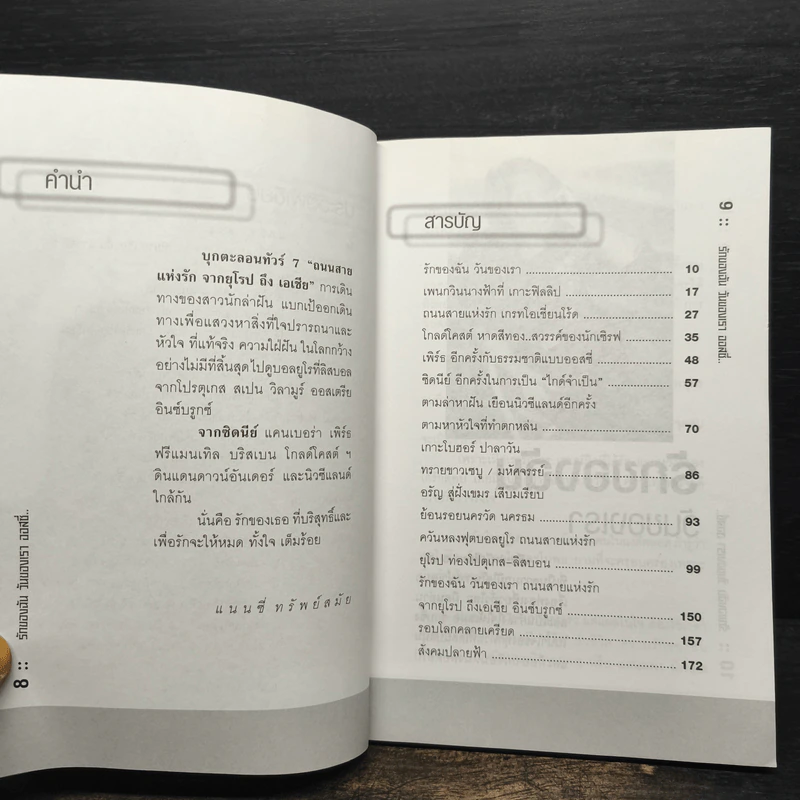 คำนำ
บุกตะลอนทัวร์ 7 "ถนนสาย
แห่งรัก จากยุโรป ถึง เอเชีย" การเดิน
ทางของสาวนักล่าฝัน แบกเป้ออกเดิน
ทางเพื่อแสวงหาสิ่งที่ใจปรารถนาและ
หัวใจ ที่แท้จริง ความใฝ่ฝัน ในโลกกว้าง
อย่างไม่มีที่สิ้นสุดไปดูบอลยูโรที่ลิสบอล
จากโปรตุเกส สเปน วิลามูร์ ออสเตรีย
อินซ์บรูกซ์
จากซิดนีย์ แคนเบอร่า เพิร์ธ
ฟรีแมนเทิล บริสเบน โกลด์โคสต์ ฯ
ดินแดนดาวน์อันเดอร์ และนิวซีแลนด์
ใกล้กัน
นั่นคือ รักของเธอ ที่บริสุทธิ์และ
เพื่อรักจะให้หมด ทั้งใจ เต็มร้อย
แนนซี ทรัพย์สมัย
8 :: รักของฉัน วันของเรา ออสซี่..
สารบัญ
รักของฉัน วันของเรา .......... 10
เพนกวินนางฟ้าที่ เกาะฟิลลิป .......... 17
ถนนสายแห่งรัก เกรทโอเชี่ยนโร้ด .......... 27
โกลด์โคสต์ หาดสีทอง..สวรรค์ของนักเซิรฟ .......... 35
เพิร์ธ อีกครั้งกับธรรมชาติแบบออสซี่ .......... 48
ซิดนีย์ อีกครั้งในการเป็น "ไกด์จำเป็น" .......... 57
ตามล่าหาฝัน เยือนนิวซีแลนด์อีกครั้ง
ตามหาหัวใจที่ทำตกหล่น .......... 70
เกาะโบฮอร์ ปาลาวัน
ทรายขาวเซบู / มหัศจรรย์ .......... 86
อรัญ สู่ฝั่งเขมร เสียมเรียบ
ย้อนรอยนครวัด นครธม .......... 93
ควันหลงฟุตบอลยูโร ถนนสายแห่งรัก
ยุโรป ท่องโปตุเกส-ลิสบอน .......... 99
รักของฉัน วันของเรา ถนนสายแห่งรัก
จากยุโรป ถึงเอเชีย อินซ์บรูกซ์ .......... 150
รอบโลกคลายเครียด .......... 157
สังคมปลายฟ้า .......... 172
9 :: รักของฉัน วันของเรา ออสซี่..